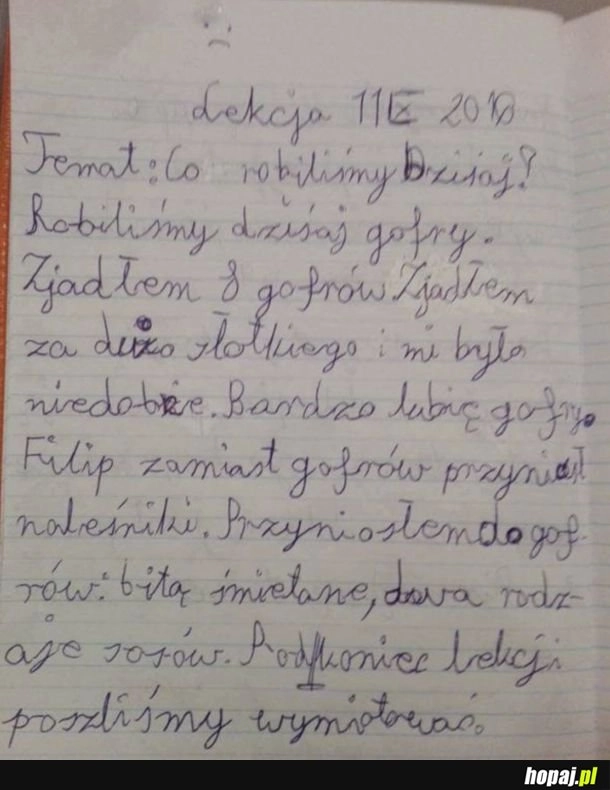 Lekcja 11 IX 2018
Temat: Co robiliśmy Dzisiaj?
Robiliśmy dziśaj gofry.
Zjadłem 8 gofrów Zjadłem
za dużo słotkiego i mi było
niedobrze. Bardzo lubię gofry.
Filip zamiast gofrów przyniusł
naleśniki. Przyniosłem do gof-
rów: bitą śmietane, dwa rodz-
aje sosów. Pod koniec lekcji
poszliśmy wymiotować.
hopaj.pl